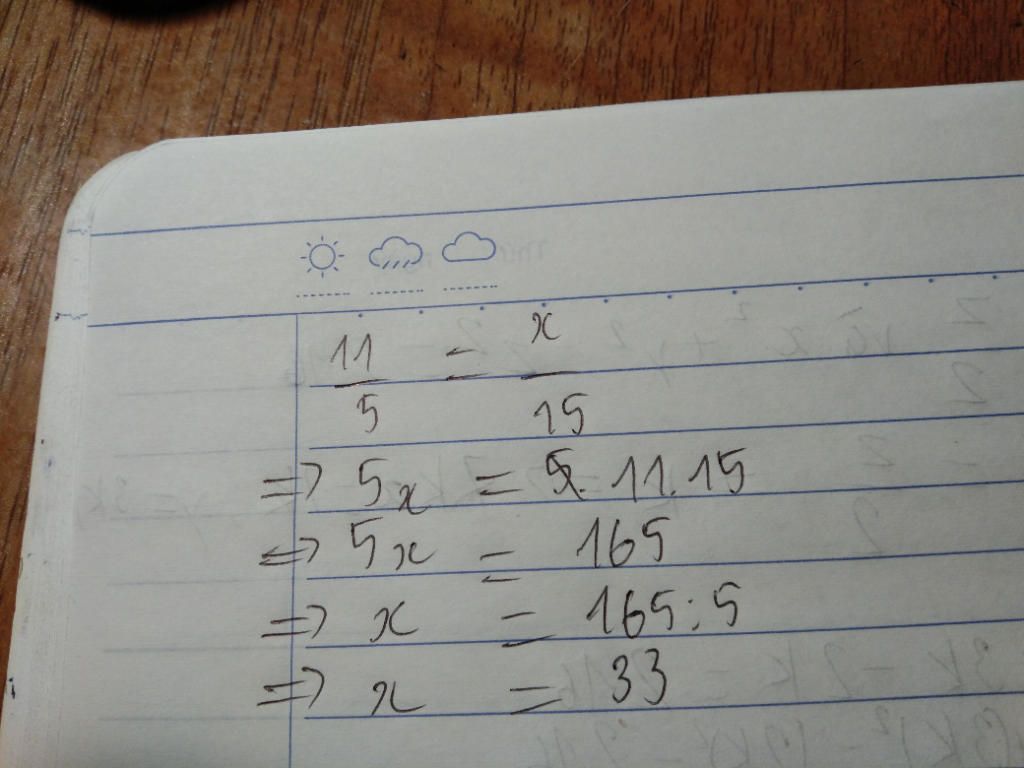 11/5 = x/15
=> 5x = 11.15
=> 5x = 165
=> x = 165:5
=> x = 33